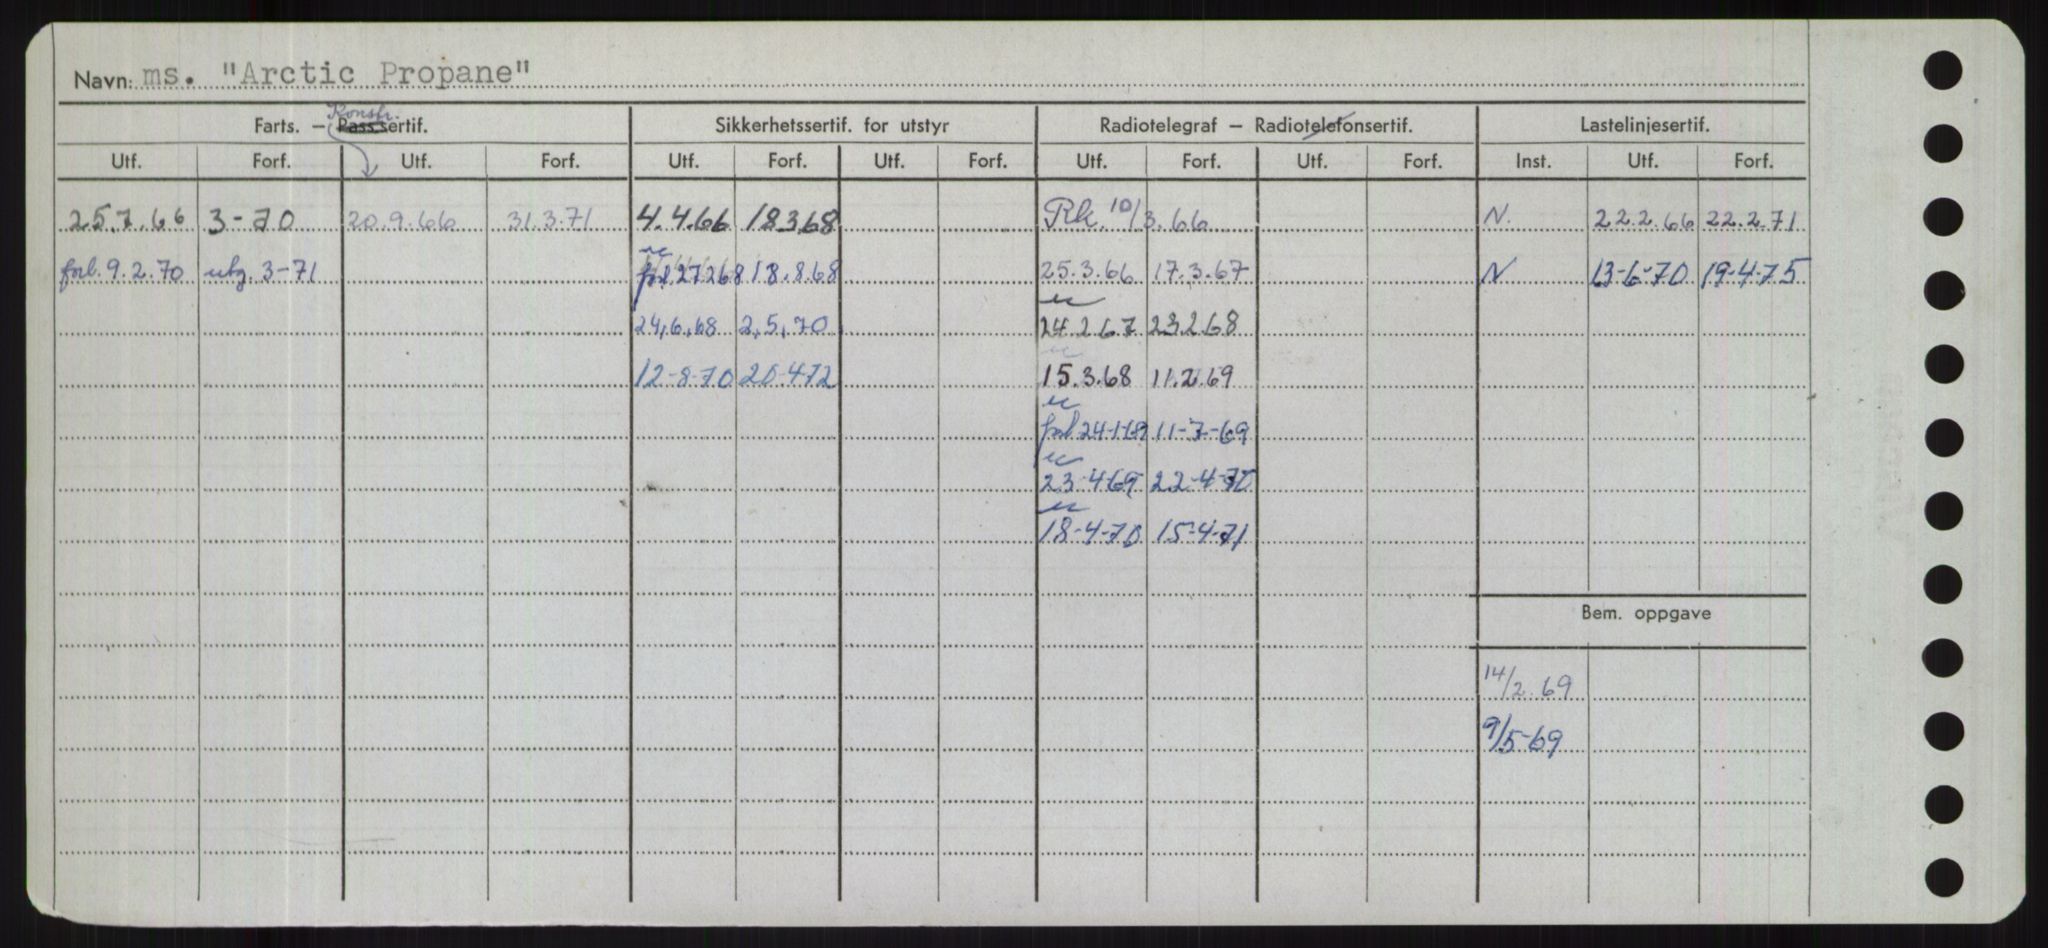 Navn: ms. "Arctic Propane"
Konstr.
Farts. — Passsertif. Sikkerhetssertif. for utstyr Radiotelegraf — Radiotelefonsertif. Lastelinjesertif.
Utf. Forf. Utf. Forf. Utf. Forf. Utf. Forf. Utf. Forf. Utf. Forf. Inst. Utf. Forf.
25.7.66 3-70 20.9.66 31.3.71 4.4.66 18368 Rk. 10/3.66 N. 22.2.66 22.2.71
forl. 9.2.70 utg. 3-71 forl 27268 18.8.68 25.3.66 17.3.67 N 13-6-70 19-4-75
24.6.68 2.5.70 24.2.67 23.2.68
12-8-70 20-4-72 15.3.68 11.2.69
forl 24-1-69 11-7-69
23-4-69 22-4-70
18-4-70 15-4-71
Bem. oppgave
14/2.69
9/5-69